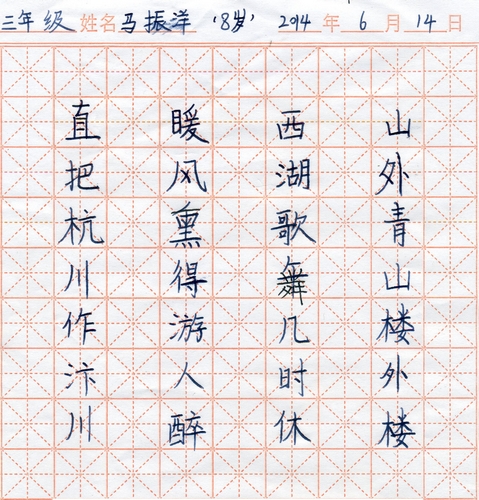 三年级 姓名 马振洋 '8岁' 2014年 6月 14日
山外青山楼外楼
西湖歌舞几时休
暖风熏得游人醉
直把杭川作汴川